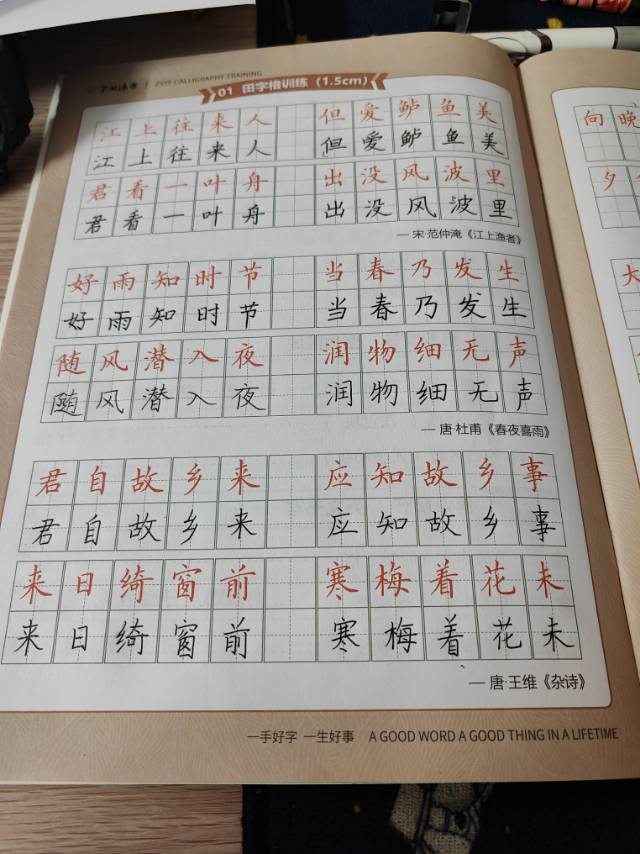 ZYYF CALLIGRAPHY TRAINING
01 田字格训练（1.5cm）
江上往来人 但爱鲈鱼美
江上往来人 但爱鲈鱼美
君看一叶舟 出没风波里
君看一叶舟 出没风波里
— 宋·范仲淹《江上渔者》
好雨知时节 当春乃发生
好雨知时节 当春乃发生
随风潜入夜 润物细无声
随风潜入夜 润物细无声
— 唐·杜甫《春夜喜雨》
君自故乡来 应知故乡事
君自故乡来 应知故乡事
来日绮窗前 寒梅着花未
来日绮窗前 寒梅着花未
— 唐·王维《杂诗》
一手好字 一生好事 A GOOD WORD A GOOD THING IN A LIFETIME
向晚
夕
大